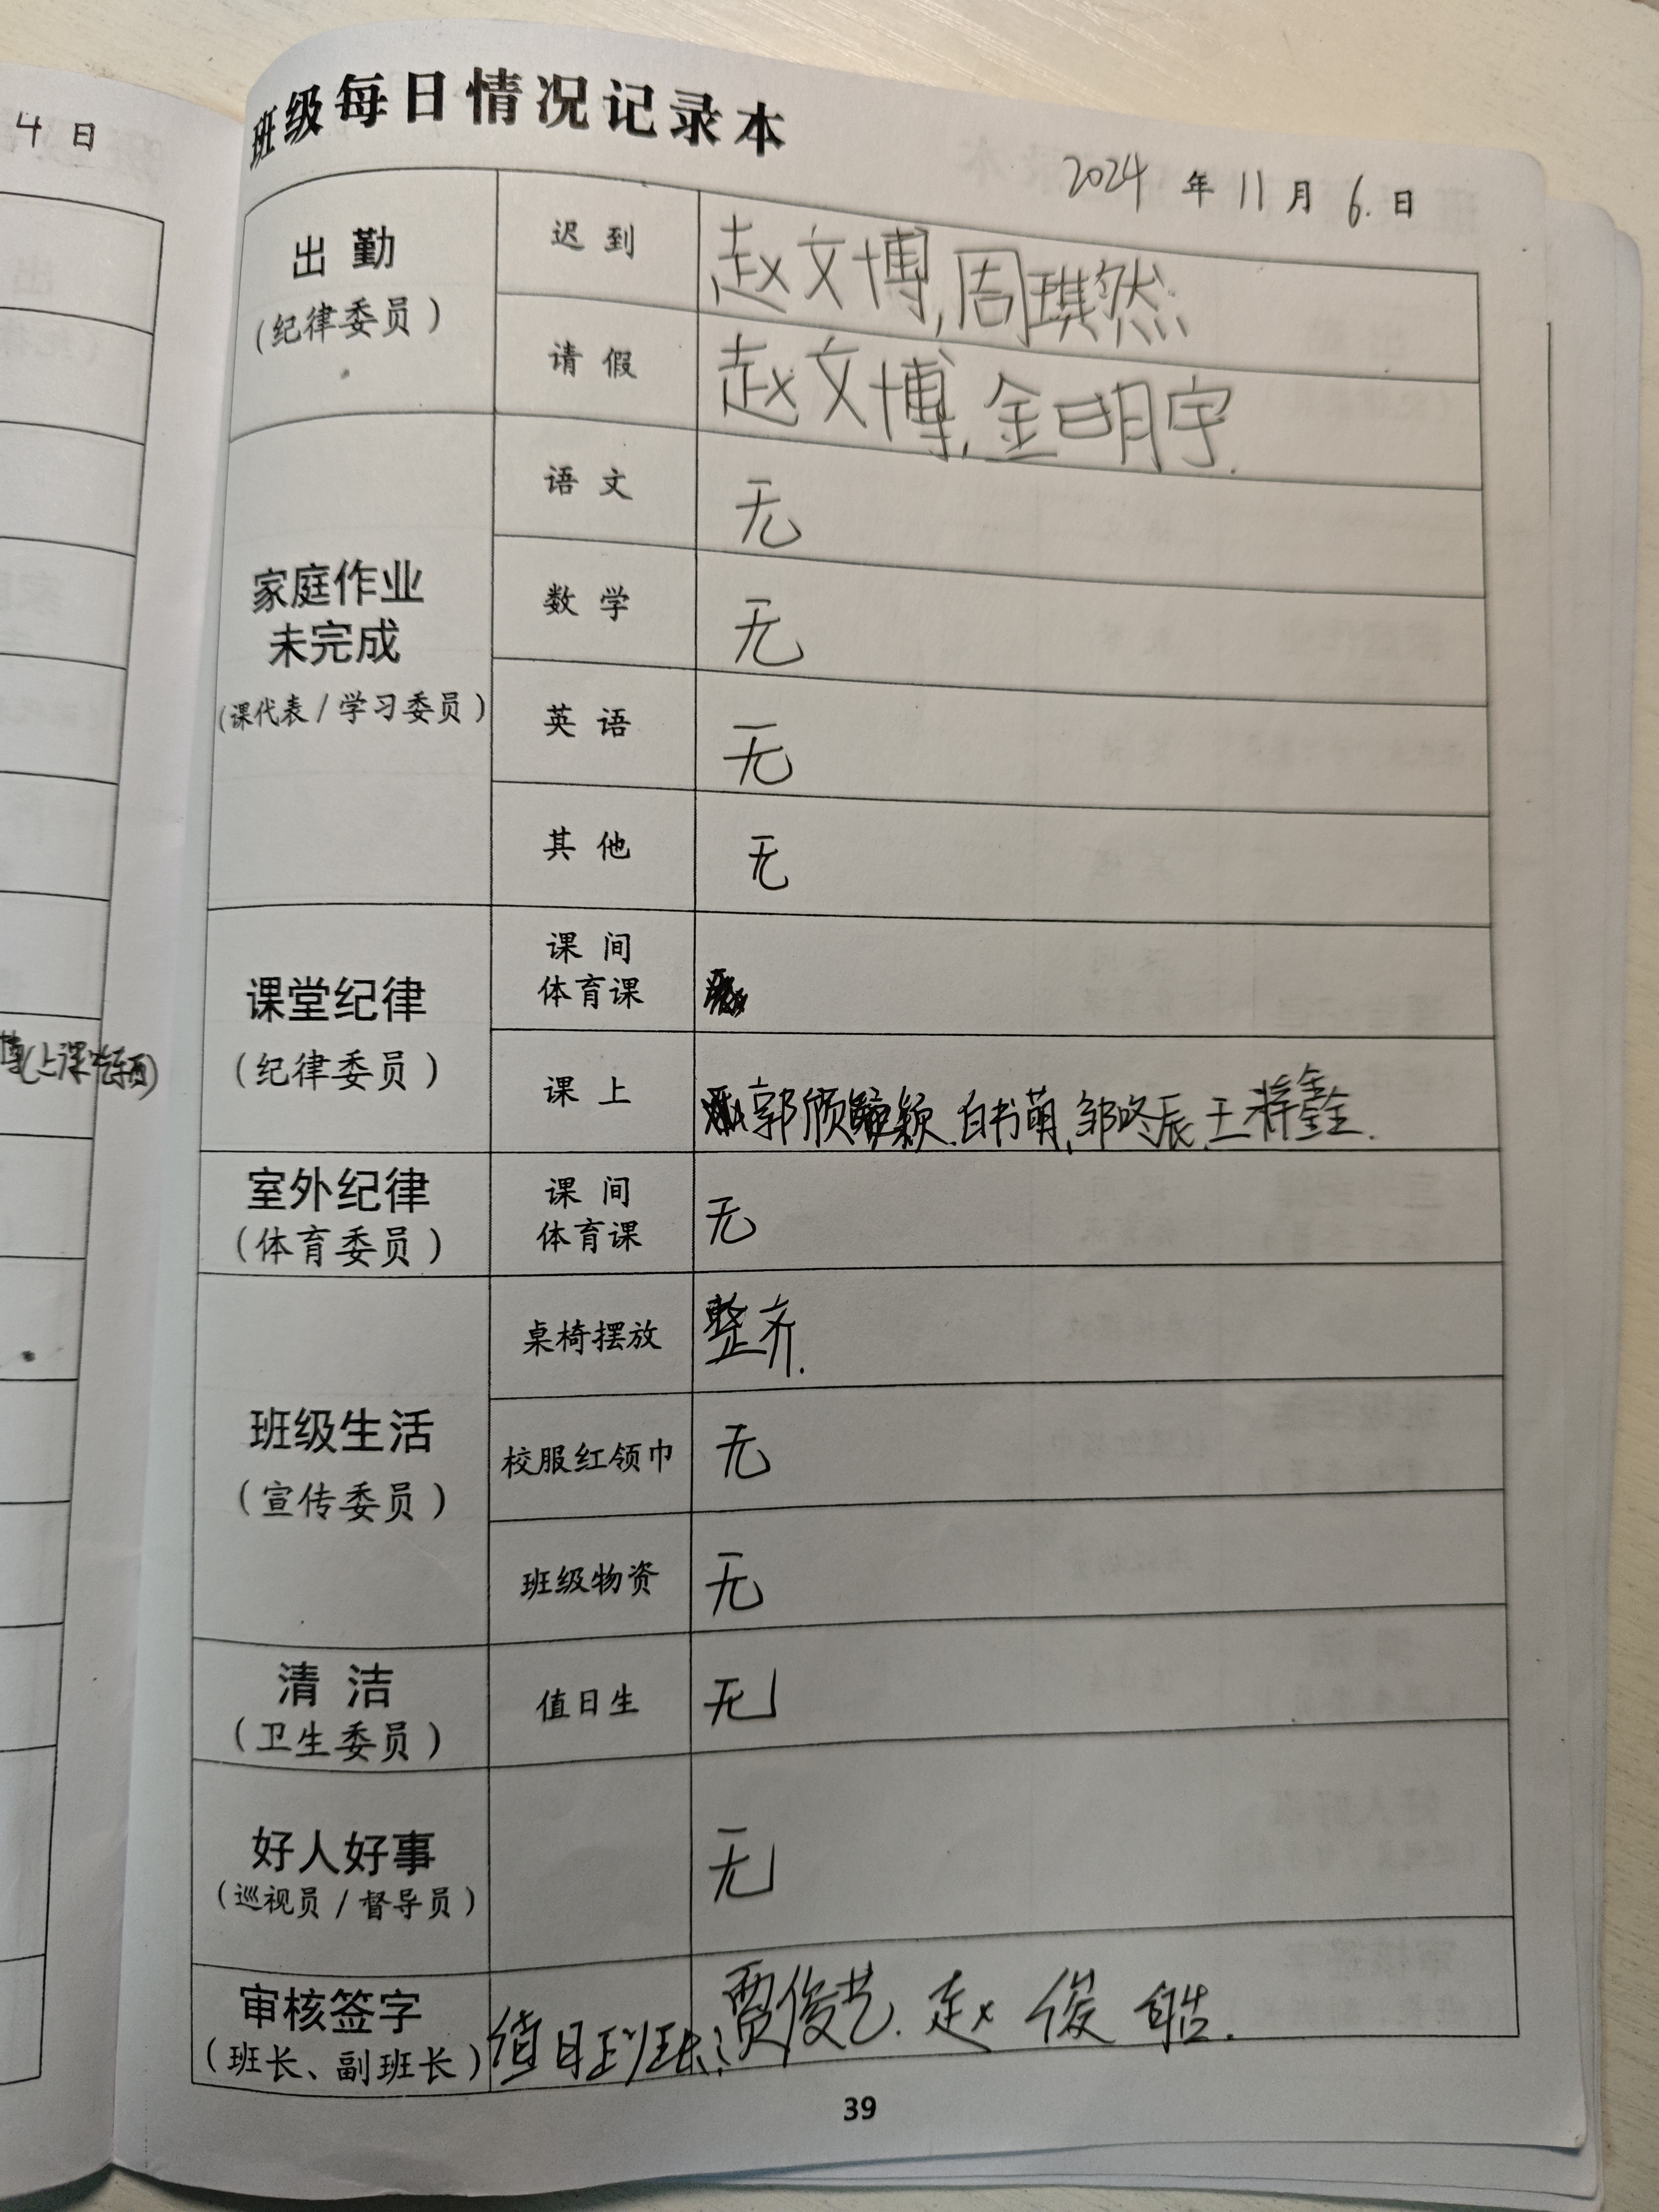 4 日
班级每日情况记录本
2024 年 11 月 6. 日
出 勤
(纪律委员)
迟 到
赵文博,周琪然
请 假
赵文博,金明宇.
家庭作业
未完成
(课代表 / 学习委员)
语 文
无
数 学
无
英 语
无
其 他
无
课堂纪律
(纪律委员)
课 间
体育课
课 上
郭 颖.白书萌,邹 辰.王梓鑫.
(上课吃东西)
室外纪律
(体育委员)
课 间
体育课
无
班级生活
(宣传委员)
桌椅摆放
整齐.
校服红领巾
无
班级物资
无
清 洁
(卫生委员)
值日生
无
好人好事
(巡视员 / 督导员)
无
审核签字
(班长、副班长)
值日班长:贾俊艺.赵俊皓.
39